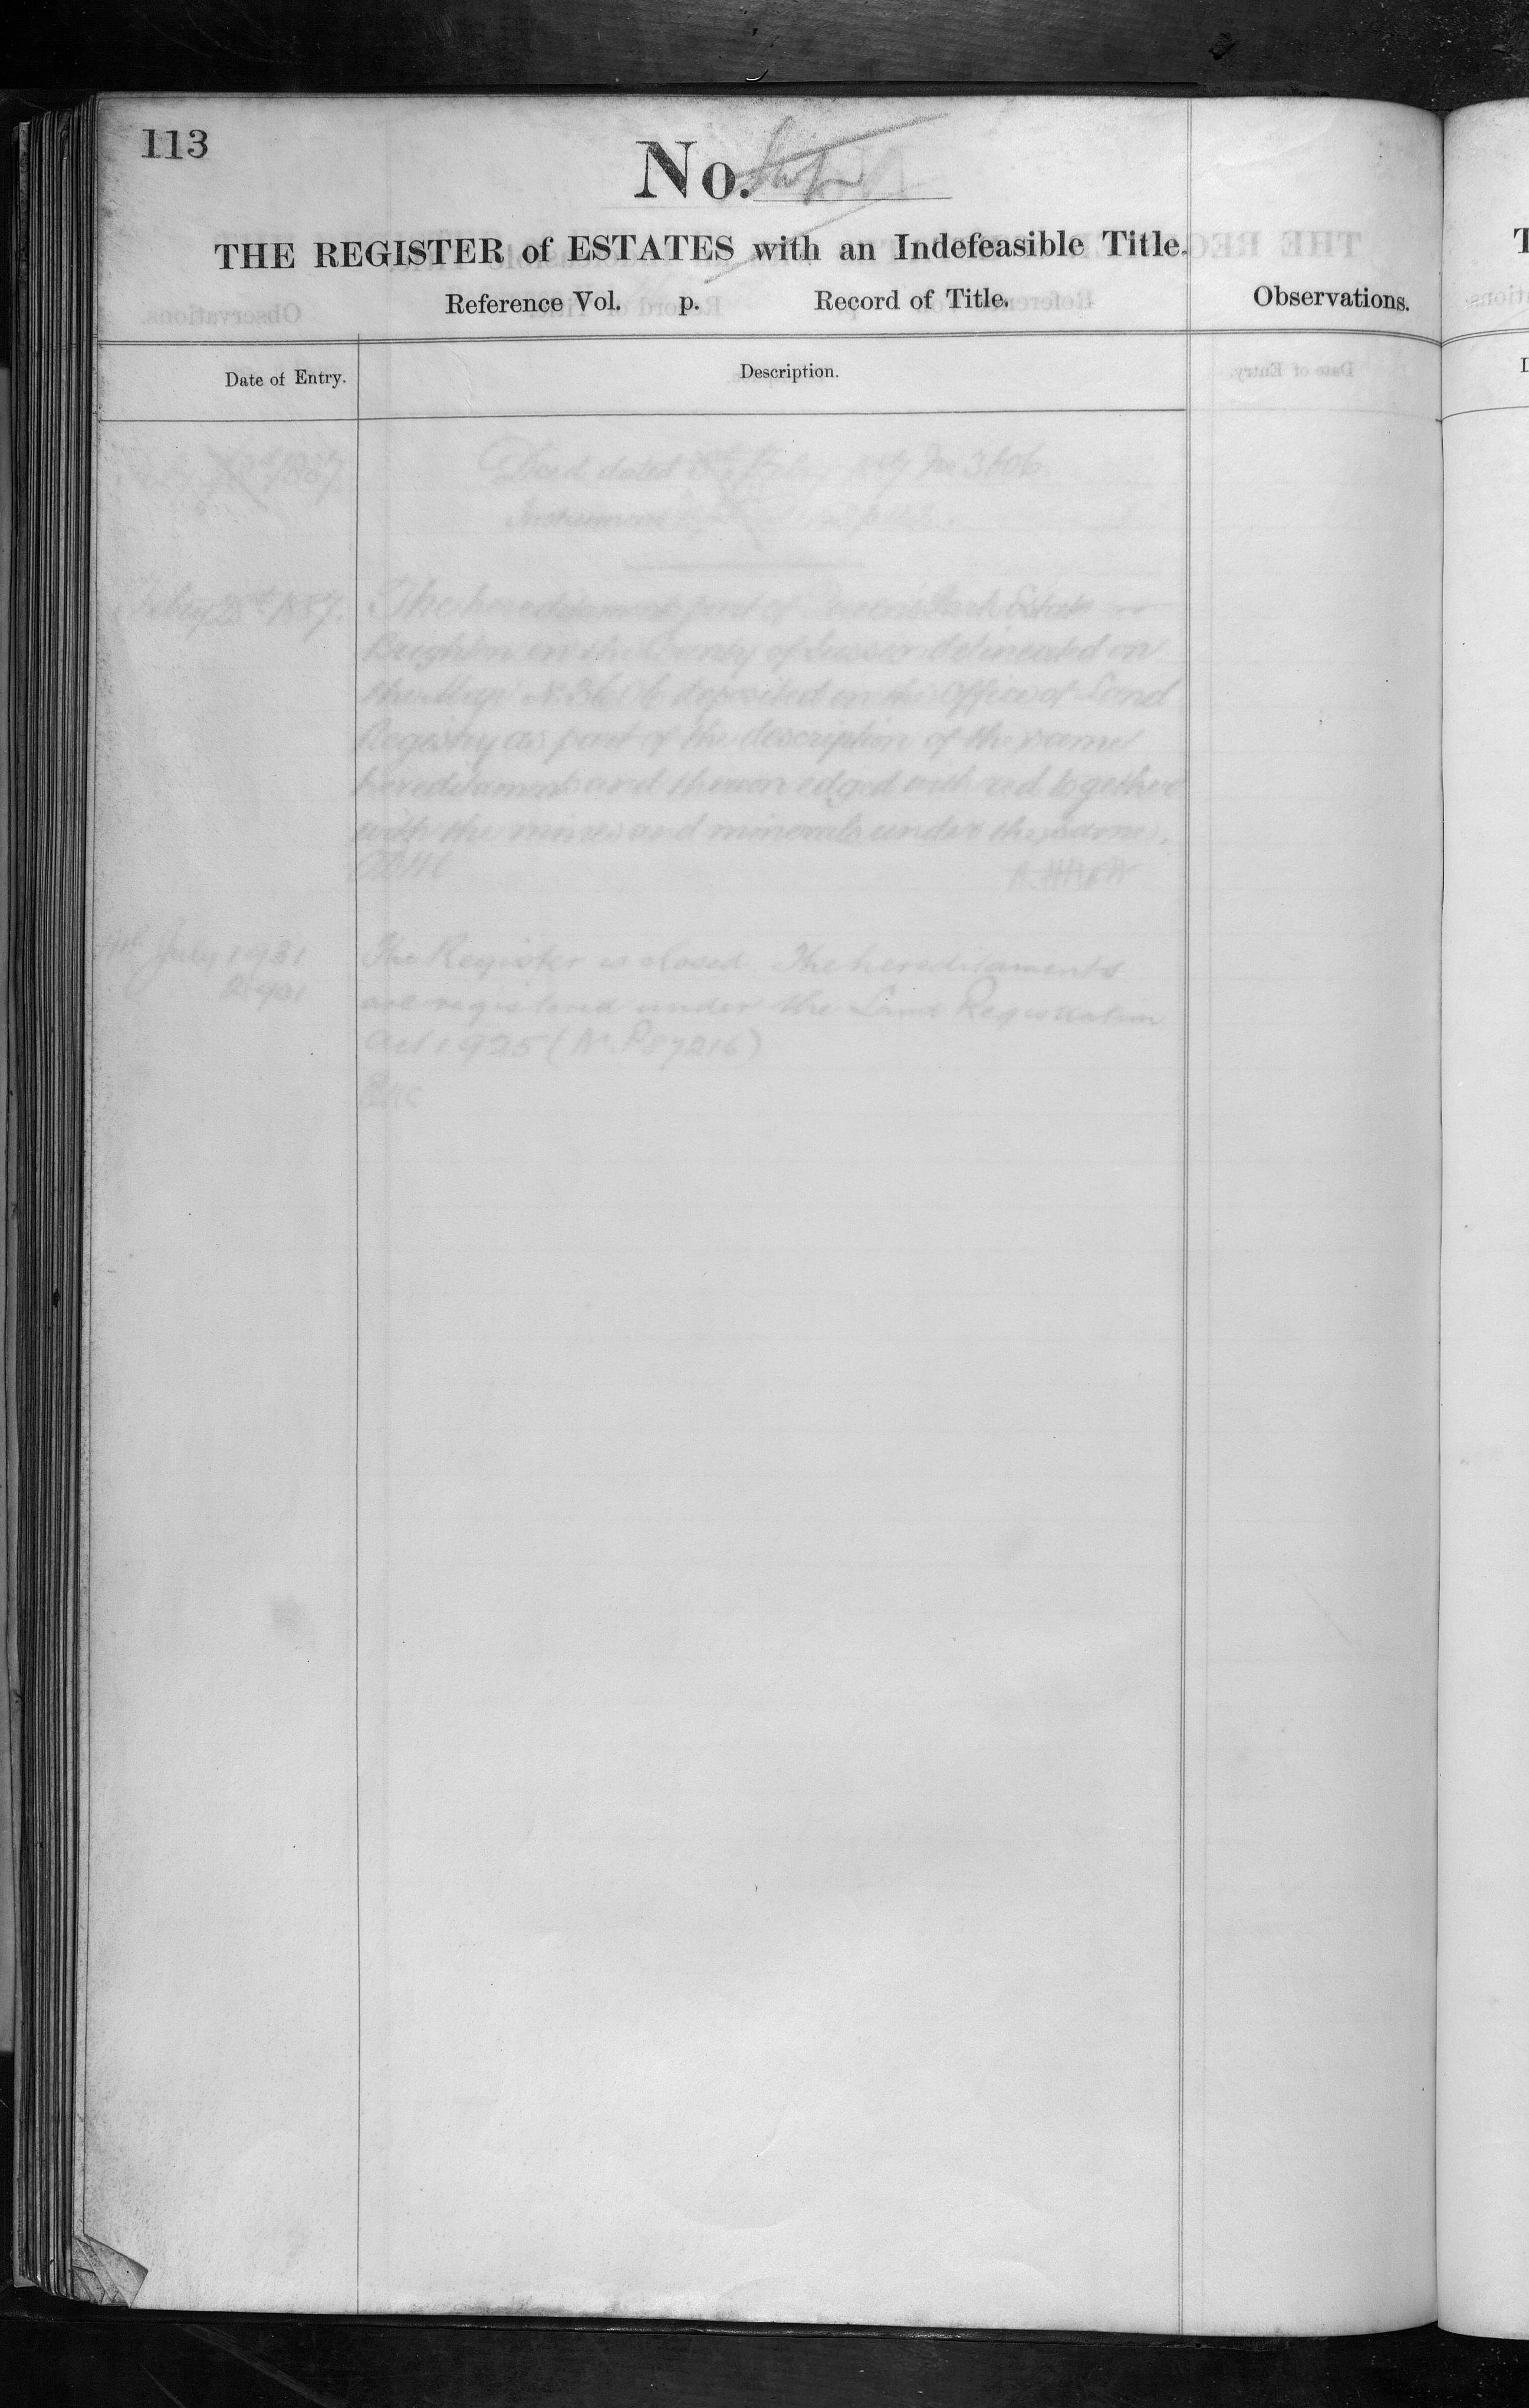 113
No.
THE REGISTER of ESTATES with an Indefeasible Title.
Reference Vol. p. Record of Title.
Observations.
Date of Entry.
Description.
1887
Deed dated No 3606.
Instrument
1887.
The hereditaments part of Queens Park Estate
Brighton in the County of Sussex delineated on
the Map No 3606 deposited in the Office of Land
Registry as part of the description of the same
hereditaments and thereon edged with red together
with the mines and minerals under the same.
July 1931
The Register is closed. The hereditaments
are registered under the Land Registration
Act 1925 (No. P87216)